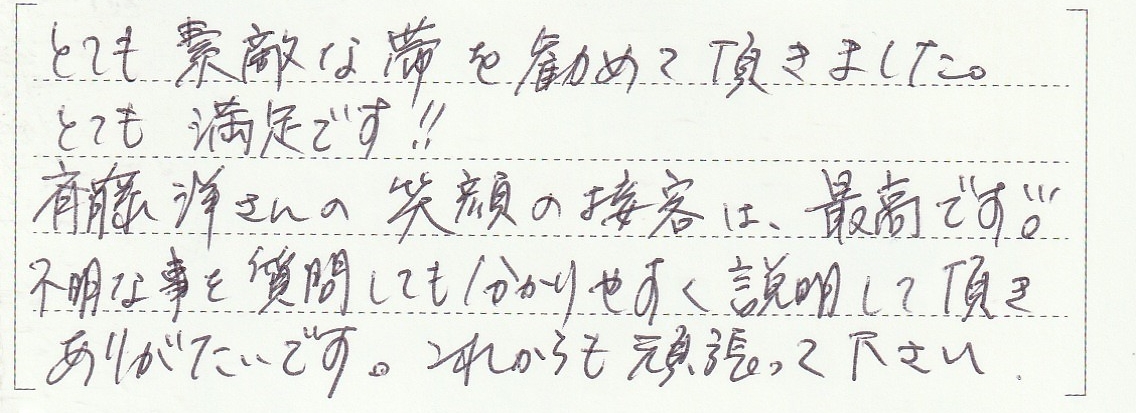 とても素敵な帯を勧めて頂きました。
とても 満足です!!
斉藤洋さんの 笑顔の接客は、最高です!!
不明な事を質問しても分かりやすく説明して頂き
ありがたいです。これからも頑張って下さい.